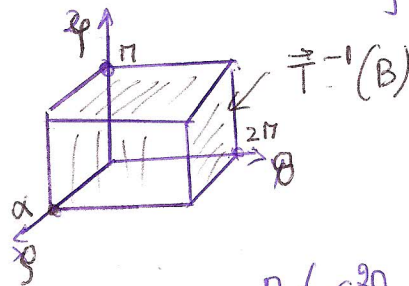 φ
π
T⃗⁻¹(B)
2π
θ
α
ρ